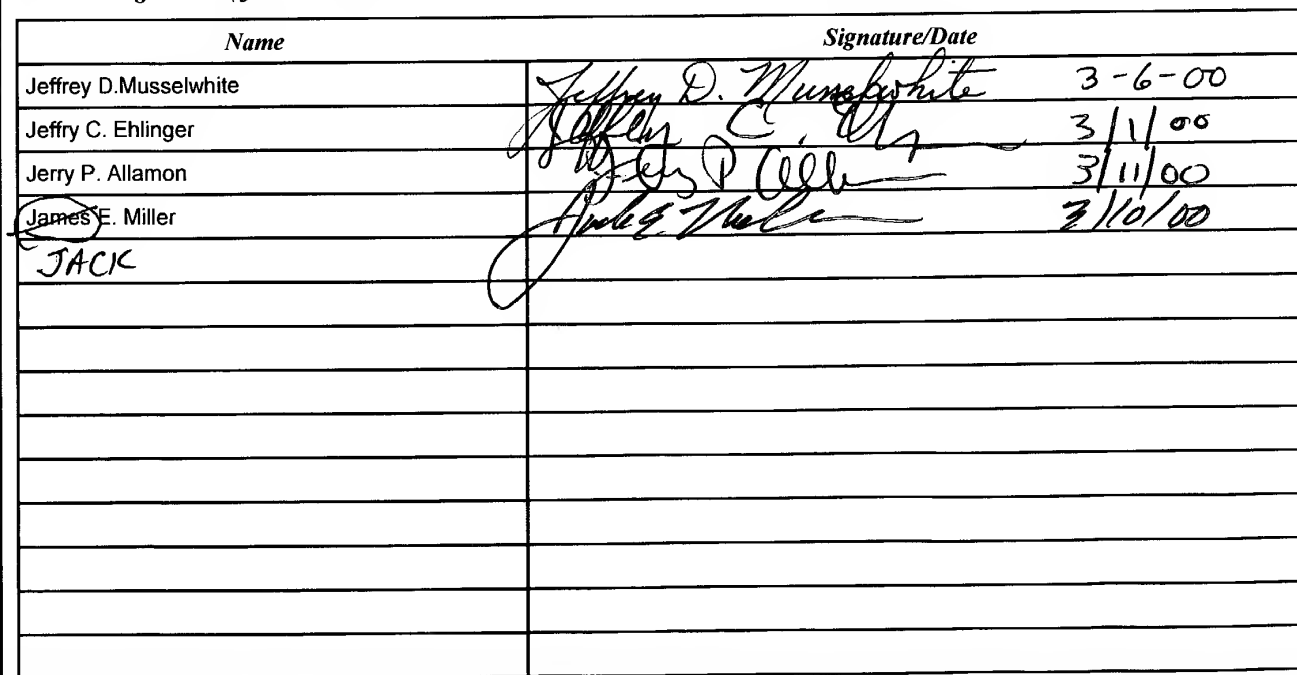 Name Signature/Date
Jeffrey D.Musselwhite Jeffrey D. Musselwhite 3-6-00
Jeffry C. Ehlinger Jeffry C. 3/1/00
Jerry P. Allamon Jerry P 3/11/00
James E. Miller Jack E. 3/10/00
JACK